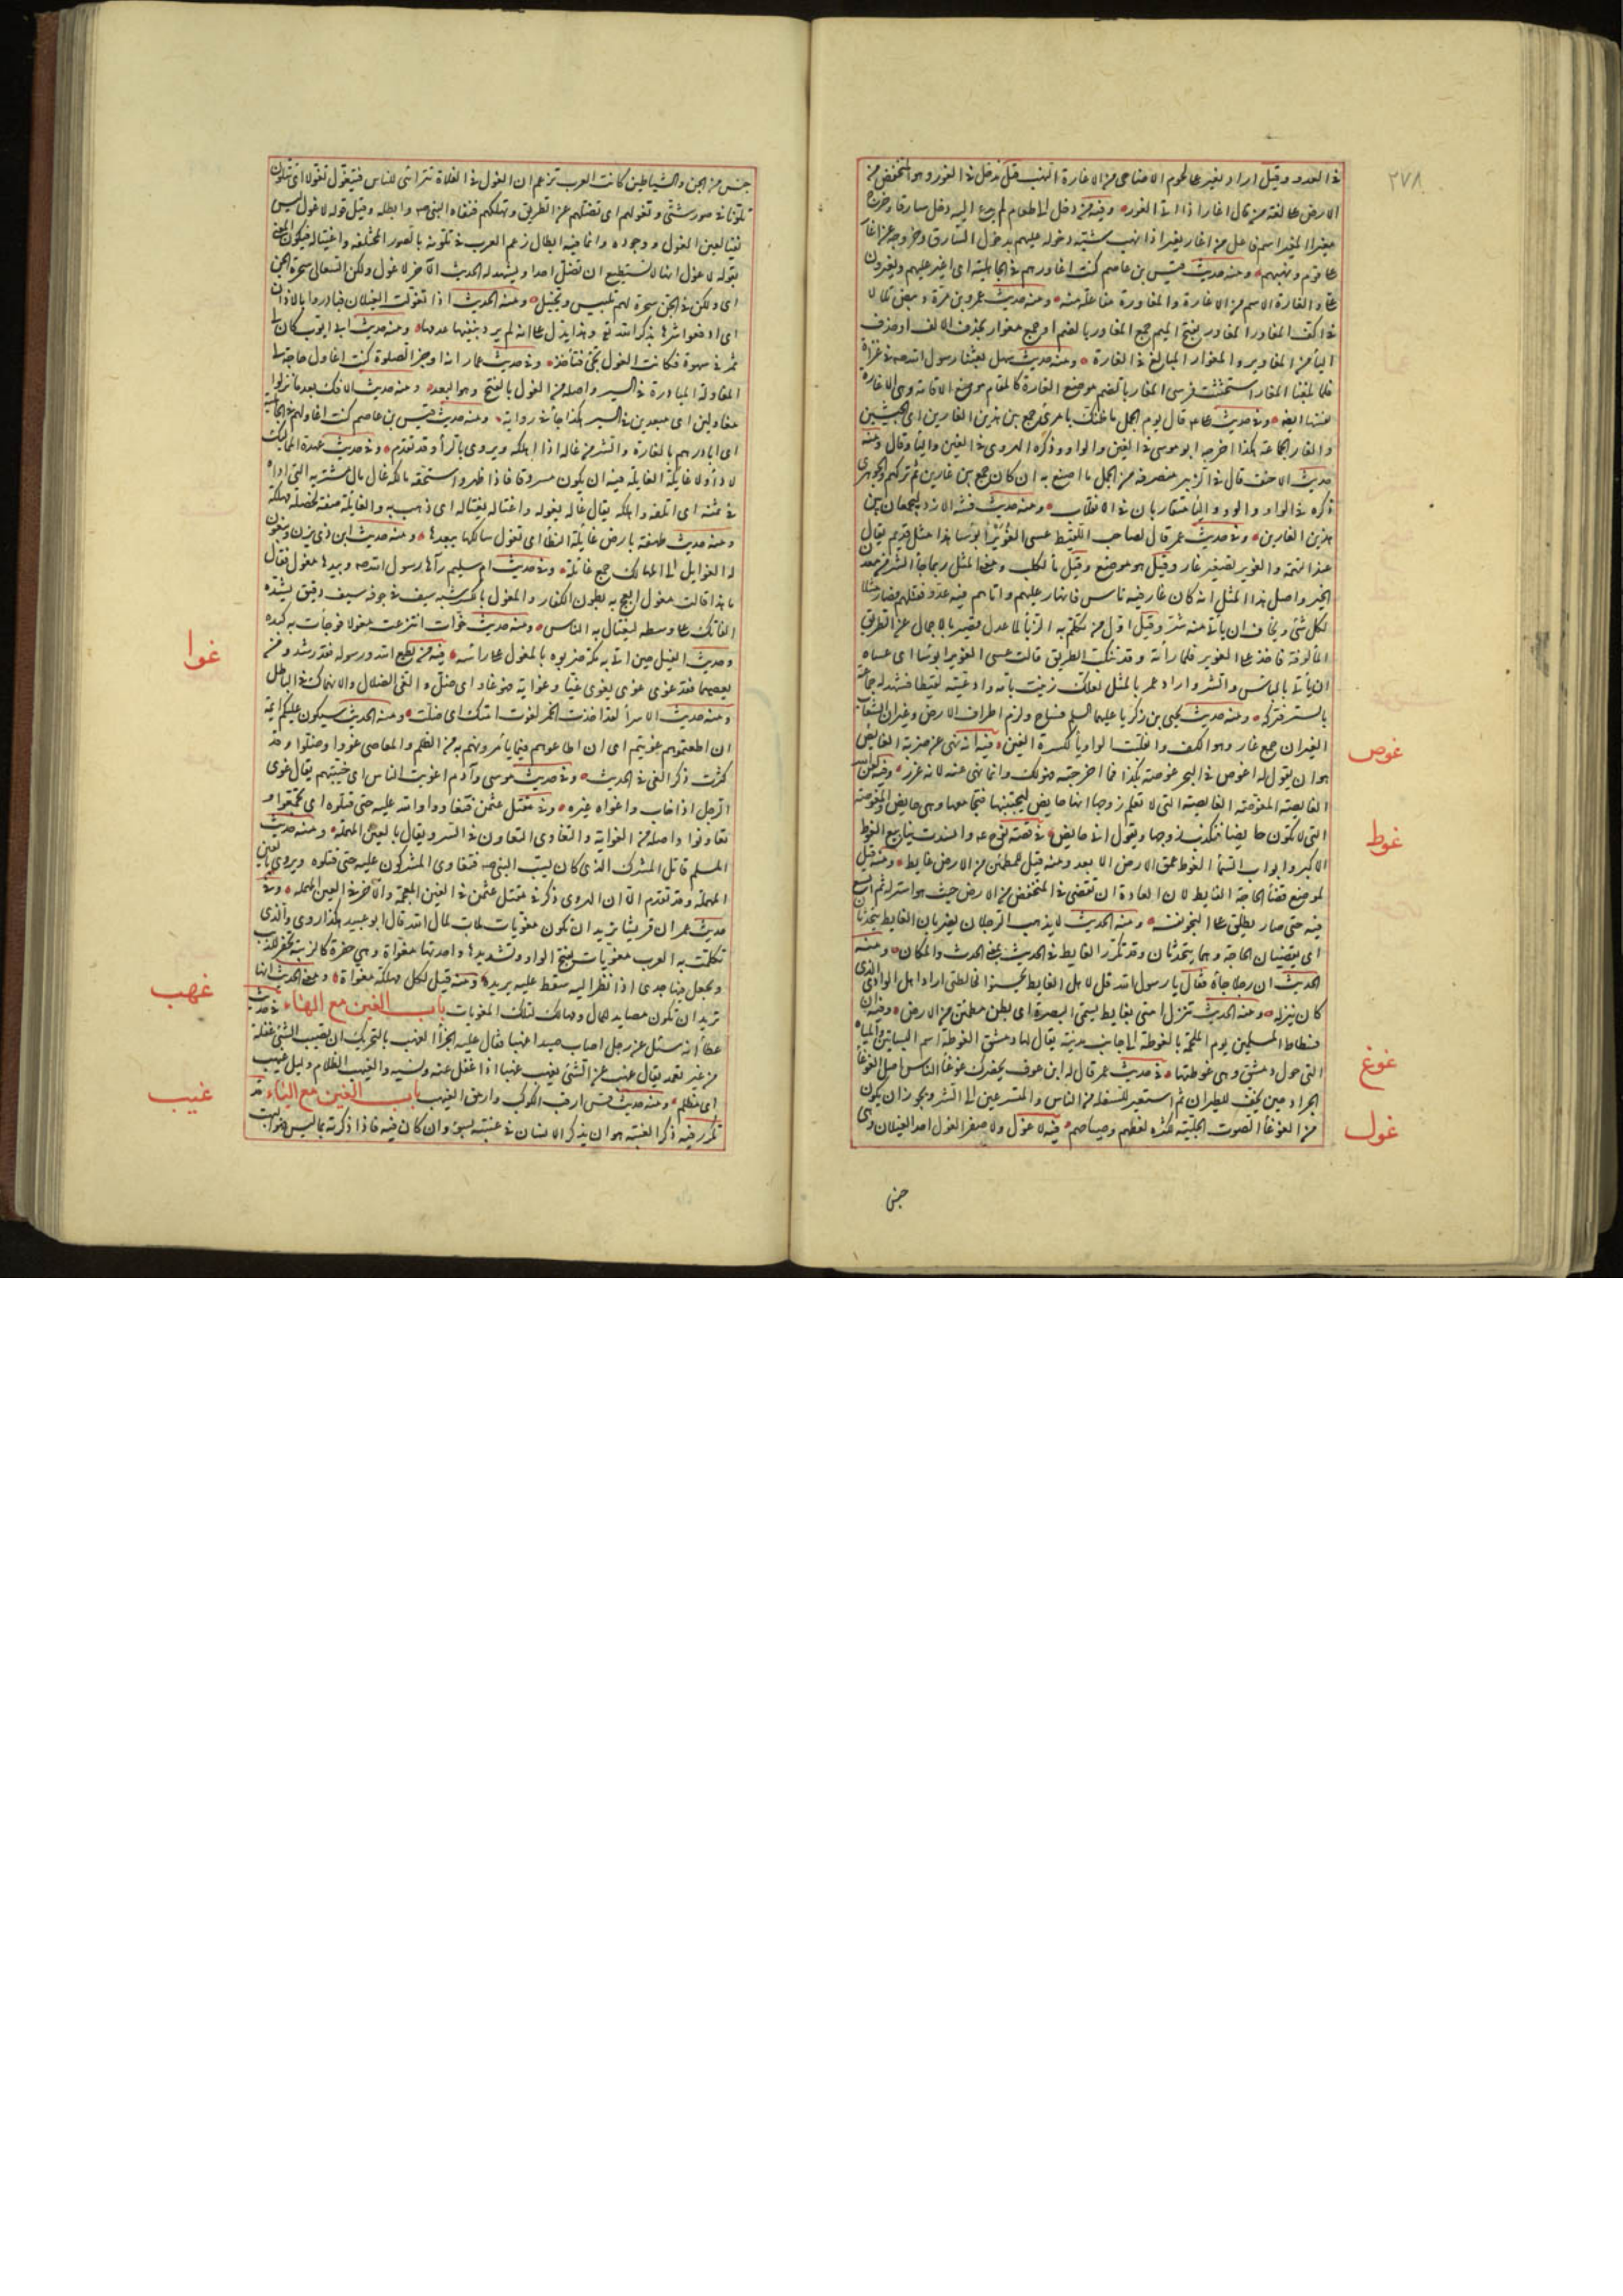 ٢٧٨
في العدو وقيل اراد يغير على لحوم الاضاحي من الاغارة النهب وقيل ندخل في الغور وهو المنخفض من
الارض على لغة من قال اغار اذا اتى الغور وفيه من دخل الى طعام لم يدع اليه دخل سارقا وخرج
مغيرا المغير اسم فاعل من اغار يغير اذا نهب شبه دخوله عليهم بدخول السارق وخروجه بمن اغار
على قوم ونهبهم ومنه حديث قيس بن عاصم كنت اغاورهم في الجاهلية اي اغير عليهم ويغيرون
علي والغارة الاسم من الاغارة والمغاورة مفاعلة منه ومنه حديث عمرو بن مرة وبيض تلالا
في اكف المغاور المغاور بفتح الميم جمع المغاور بالضم او جمع مغوار بحذف الالف او حذف
الياء من المغاوير والمغوار المبالغ في الغارة ومنه حديث سهل بعثنا رسول الله صه في غزاة
فلما بلغنا المغار استحثثت فرسي المغار بالضم موضع الغارة كالمقام موضع الاقامة وهي الاغارة
نفسها ايضا وفي حديث علي قال يوم الجمل ما ظنك بامرئ جمع بين هذين الغارين اي الجيشين
والغار الجماعة هكذا اخرجه ابو موسى في الغين والواو وذكره الهروي في الغين والياء وقال ومنه
حديث الاحنف قال في الزبير منصرفه من الجمل ما اصنع به ان كان جمع بين غارين ثم تركهم والجوهري
ذكره في الواو والواو والياء متقاربان في الانقلاب ومنه حديث فتنة الازد ليجمعان بين
هذين الغارين وفي حديث عمر قال لصاحب اللقيط عسى الغوير ابؤسا هذا مثل قديم يقال
عند التهمة والغوير تصغير غار وقيل هو موضع وقيل ماء لكلب ومعنى المثل ربما جاء الشر من معدن
الخير واصل هذا المثل انه كان غار فيه ناس فانهار عليهم واتاهم فيه عدو فقتلهم فصار مثلا
لكل شئ يخاف ان يأتي منه شر وقيل اول من تكلم به الزباء لما عدل قصير بالاجمال عن الطريق
المألوفة فاخذ على الغوير فلما رأته وقد تنكب الطريق قالت عسى الغوير ابؤسا اي عساه
ان يأتي بالباس والشر واراد عمر بالمثل لعلك زنيت بامه وادعيته لقيطا فشهد له جماعة
بالستر فتركه ومنه حديث يحيى بن زكريا عليهما السلم فساح ولزم اطراف الارض وغيران الشعاب
الغيران جمع غار وهو الكهف وانقلبت الواو ياء لكسرة الغين فيه انه نهى عن ضربة الغايص
غوص
هو ان يقول له اغوص في البحر غوصة بكذا فما اخرجته فهو لك وانما نهى عنه لانه غرر وفيه لعن
الغايصة المغوصة الغايصة التي لا تعلم زوجها انها حايض ليجتنبها فيجامعها وهي حايض والمغوصة
التي لا تكون حايضا فتكذب زوجها ويقول اني حايض في قصة نوح عه وانسدت ينابيع الغوط
غوط
الاكبر وابواب السماء الغوط عمق الارض الابعد ومنه قيل للمطمئن من الارض غايط ومنه قيل
لموضع قضاء الحاجة الغايط لان العادة ان تقضى في المنخفض من الارض حيث هو استر له ثم اتسع
فيه حتى صار يطلق على النجو نفسه ومنه الحديث لا يذهب الرجلان يضربان الغايط يتحدثان
اي يقضيان الحاجة وهما يتحدثان وقد تكرر الغايط في الحديث بمعنى الحدث والمكان ومنه
الحديث ان رجلا جاءه فقال يا رسول الله قل لاهل الغايط يحسنوا مخالطتي اراد اهل الوادي الذي
كان ينزله ومنه الحديث تنزل امتي بغايط يسمى البصرة اي بطن مطمئن من الارض وفيه ان
فسطاط المسلمين يوم الملحمة بالغوطة الى جانب مدينة يقال لها دمشق الغوطة اسم البساتين والمياه
التي حول دمشق وهي غوطتها في حديث عمر قال له ابن عوف يحضرك غوغاء الناس اصل الغوغاء
غوغ
الجراد حين يخف للطيران ثم استعير للسفلة من الناس والمتسرعين الى الشر ويجوز ان يكون
من الغوغاء الصوت الجلبة لكثرة لغطهم وصياحهم فيه لا غول ولا صفر الغول احد الغيلان وهي
غول
جنس
جنس من الجن والشياطين كانت العرب تزعم ان الغول في الفلاة تتراءى للناس فتتغول تغولا اي تتلون
تلونا في صور شتى وتغولهم اي تضلهم عن الطريق وتهلكهم فنفاه النبي صه وابطله وقيل قوله لا غول ليس
نفيا لعين الغول ووجوده وانما فيه ابطال زعم العرب في تلونه بالصور المختلفة واغتياله فيكون المعنى
بقوله لا غول انها لا تستطيع ان تضل احدا ويشهد له الحديث الآخر لا غول ولكن السعالي سحرة الجن
اي ولكن في الجن سحرة لهم تلبيس وتخييل ومنه الحديث اذا تغولت الغيلان فبادروا بالاذان
اي ادفعوا شرها بذكر الله تع وهذا يدل على انه لم يرد بنفيها عدمها ومنه حديث ابي ايوب كان لي
تمر في سهوة فكانت الغول تجئ فتأخذ وفي حديث عمار انه اوجز الصلوة كنت اغاول حاجة لي
المغاولة المبادرة في السير واصله من الغول بالفتح وهو البعد ومنه حديث الافك بعد ما نزلوا
مغاولين اي مبعدين في السير هكذا جاء في رواية ومنه حديث قيس بن عاصم كنت اغاولهم في الجاهلية
اي ابادرهم بالغارة والشر من غاله اذا اهلكه ويروى بالراء وقد تقدم وفي حديث عهدة المماليك
لا داء ولا غايلة الغايلة فيه ان يكون مسروقا فاذا ظهر واستحقه مالكه غال مال مشتريه الذي اداه
في ثمنه اي اتلفه واهلكه يقال غاله يغوله واغتاله يغتاله اي ذهب به والغايلة صفة لخصلة مهلكة
ومنه حديث طهفة بارض غايلة النطاء اي تغول سالكها ببعدها ومنه حديث ابن ذي يزن ويبغون
له الغوايل اي المهالك جمع غائلة وفي حديث ام سليم رآها رسول الله صه وبيدها مغول فقال
ما هذا قالت مغول ابعج به بطون الكفار والمغول بالكسر شبه سيف في جوفه سيف دقيق يشده
الفاتك على وسطه ليغتال به الناس ومنه حديث خوات انتزعت مغولا فوجأت به كبده
وحديث الفيل حين اتي به مكة ضربوه بالمغول على راسه فيه من يطع الله ورسوله فقد رشد ومن
غوا
يعصهما فقد غوى غوى يغوي غيا وغواية فهو غاو اي ضل والغي الضلال والانهماك في الباطل
ومنه حديث الاسراء لقد اخذت الخمر لغوت امتك اي ضلت ومنه الحديث سيكون عليكم ائمة
ان اطعتموهم غويتم اي ان اطاعوهم فيما يأمرونهم به من الظلم والمعاصي غووا وضلوا وقد
كثرت ذكر الغي في الحديث وفي حديث موسى وآدم اغويت الناس اي خيبتهم يقال غوى
الرجل اذا خاب واغواه غيره وفي مقتل عثمن فتغاووا والله عليه حتى قتلوه اي تجمعوا و
تعاونوا واصله من الغواية والتغاوي التعاون في الشر ويقال بالعين المهملة ومنه حديث
المسلم قاتل المشرك الذي كان يسب النبي صه فتغاوى المشركون عليه حتى قتلوه ويروى بالعين
المهملة وقد تقدم الا ان الهروي ذكر في مقتل عثمن في الغين المعجمة والآخر في العين المهملة وفي
حديث عمر ان قريشا تريد ان تكون مغويات لمال الله قال ابو عبيد هكذا روي والذي
تكلمت به العرب مغويات بفتح الواو وتشديدها واحدتها مغواة وهي حفرة كالزبية تحفر للذئب
ويجعل فيها جدي اذا نظر اليه سقط عليه يريده ومنه قيل لكل مهلكة مغواة ومعنى الحديث انها
تريد ان تكون مصايد للمال ومهالك كتلك المغويات باب الغين مع الهاء في حديث
غهب
عطاء انه سئل عن رجل اصاب صيدا غهبا فقال عليه الجزاء الغهب بالتحريك ان يصيب الشئ غفلة
من غير تعمد يقال غهب عن الشئ يغهب غهبا اذا غفل عنه ونسيه والغيهب الظلام وليل غيهب
اي مظلم ومنه حديث قس ارقب الكوكب وارمق الغيهب باب الغين مع الياء قد
غيب
تكرر فيه ذكر الغيبة هو ان يذكر الانسان في غيبته بسوء وان كان فيه فاذا ذكرته بما ليس فيه